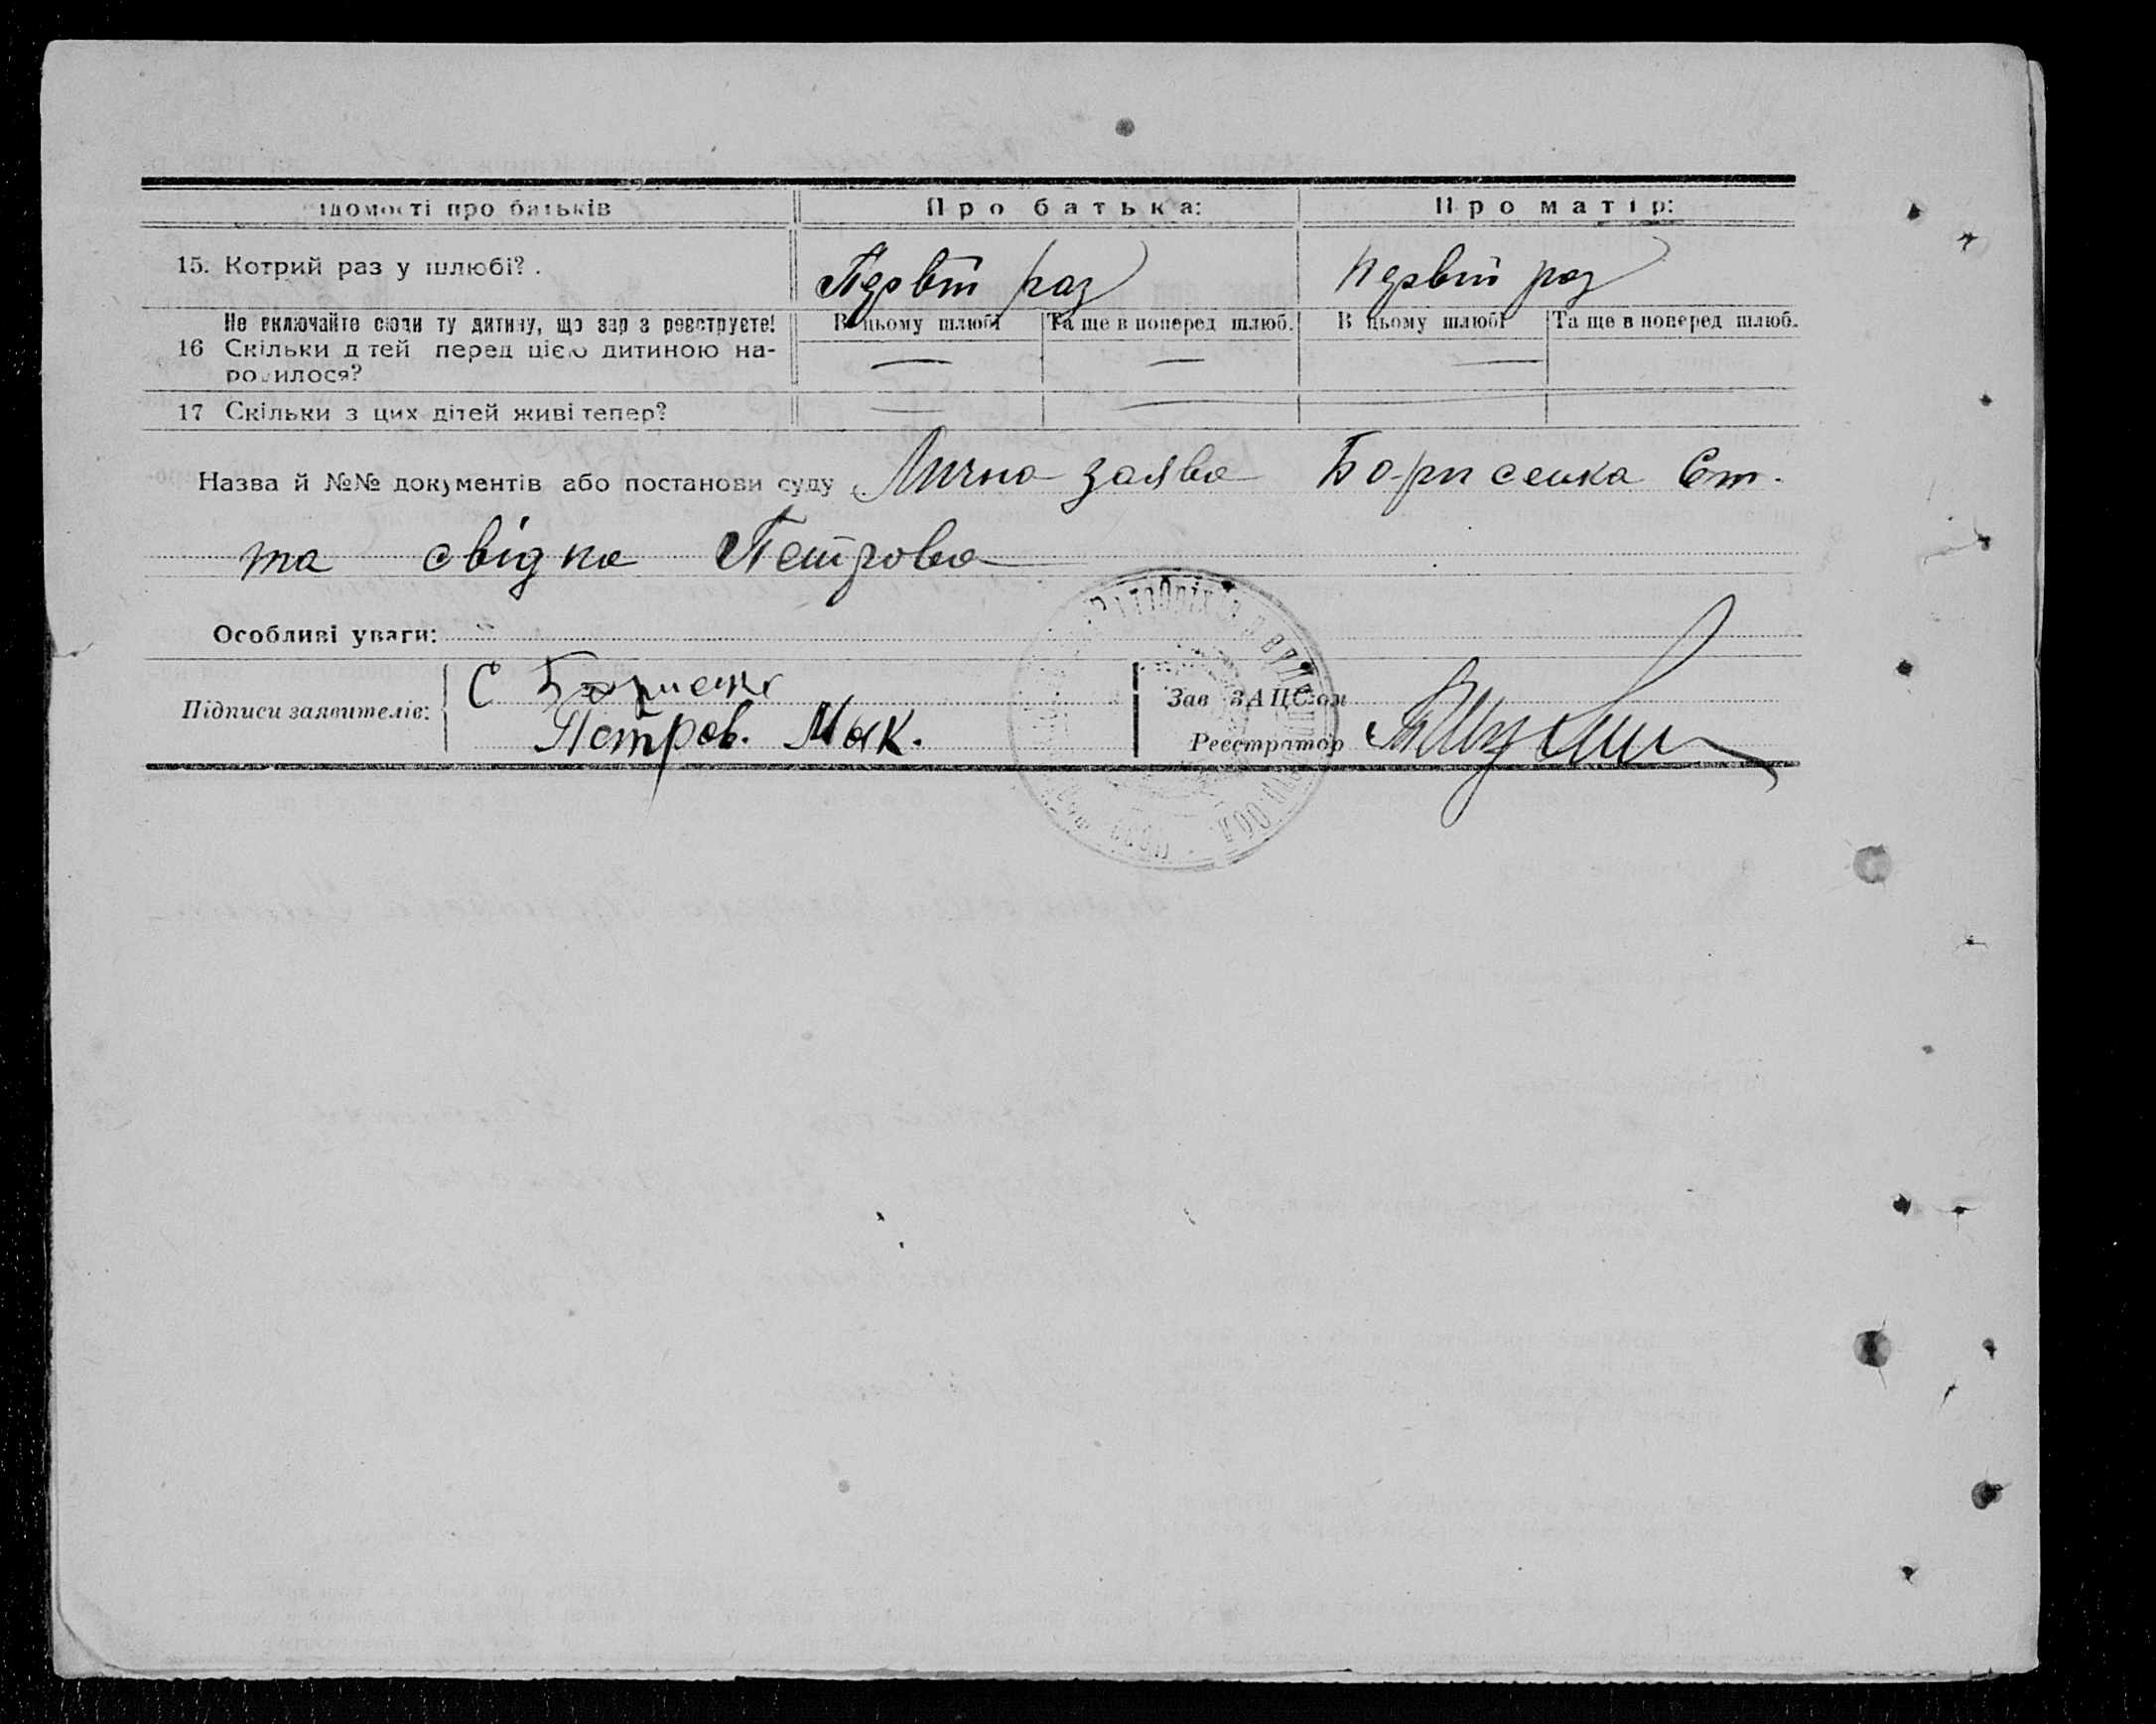 ідомості про батьків Про батька: Про матір:
15. Котрий раз у шлюбі? . Первій раз Первій раз
Не включайте сюди ту дитину, що зар з реєструєте! В цьому шлюбі Та ще в поперед шлюб. В цьому шлюбі Та ще в поперед шлюб.
16 Скільки д тей перед цією дитиною на- — — —
родилося?
17 Скільки з цих дітей живі тепер? — —
Назва й №№ документів або постанови суду Лична заява Борисенка Ст.
та свідка Петрова
Особливі уваги:
Підписи заявителів: С Борисенк
Петров. Мак.
Зав ЗАЦС‑ом
Реєстратор